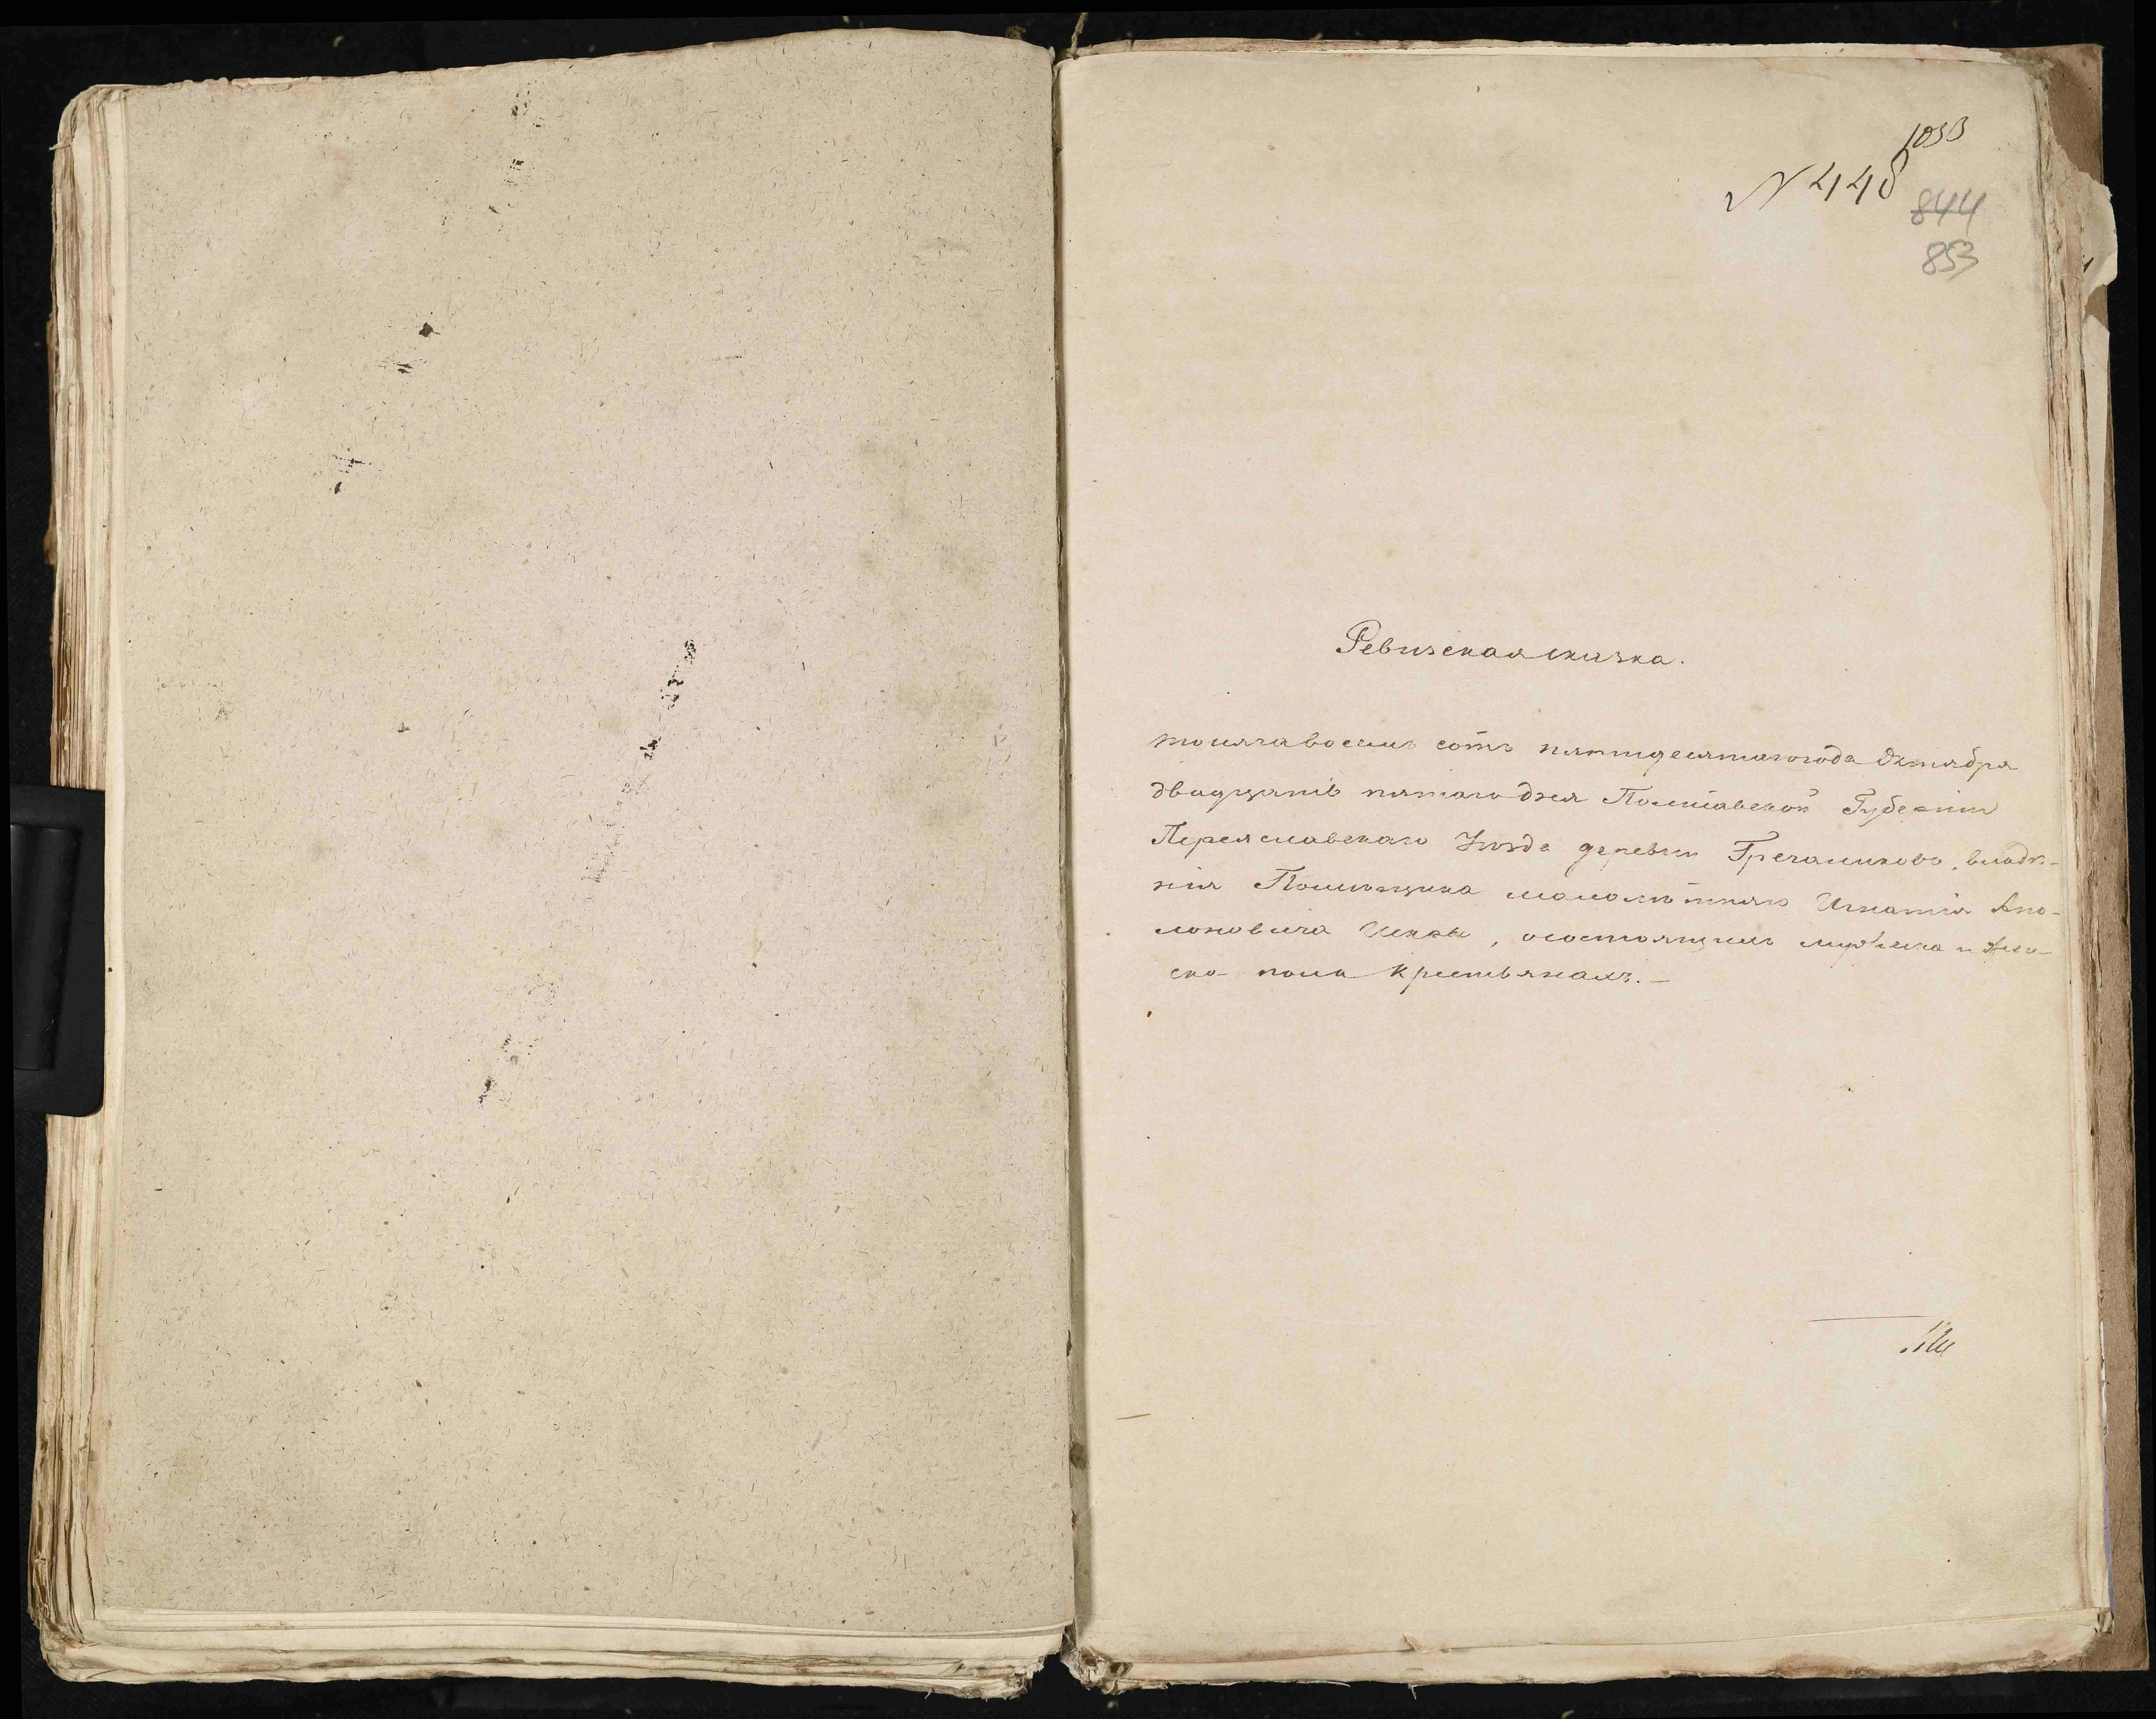 1053
N 448
844
853
Ревизская сказка.
тысяча восемь сотъ пятидесятаго года Октября
двадцать пятаго дня Полтавской Губерніи
Переяславскаго Уѣзда деревни Гречаниково, владѣ-
нія Помѣщика малолѣтняго Игнатія Апо-
лоновича, о состоящихъ мужеска и жен-
ска пола крестьянахъ.—